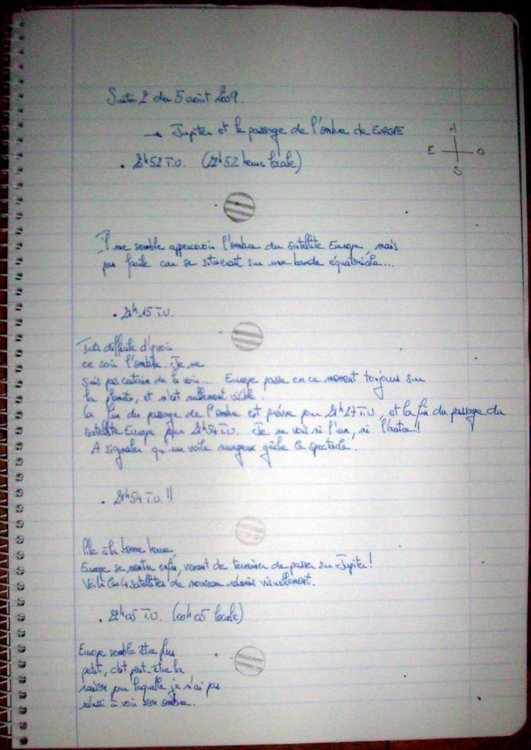 Suite 2 du 5 août 2009.
→ Jupiter et le passage de l'ombre de EUROPE
N
E O
S
. 20h52 T.U. (22h52 heure locale)
Il me semble apercevoir l'ombre du satellite Europe, mais
pas facile car se situerait sur une bande équatoriale...
. 21h15 T.U.
Très difficile d'y voir
ce soir l'ombre. Je ne
suis pas certain de la voir... Europe passe en ce moment toujours sur
la planète, et n'est nullement visible.
La fin du passage de l'ombre est prévue pour 21h27 T.U, et la fin du passage du
satellite Europe pour 21h54 T.U. Je ne vois ni l'un, ni l'autre!
A signaler qu'un voile nuageux gâche le spectacle.
. 21h54 T.U. !!
Pile à la bonne heure,
Europe se montre enfin, venant de terminer de passer sur Jupiter!
Voilà les 4 satellites de nouveau réunis visuellement.
. 22h05 T.U. (00h05 locale)
Europe semble être plus
petit, c'est peut-être la
raison pour laquelle je n'ai pas
réussi à voir son ombre.